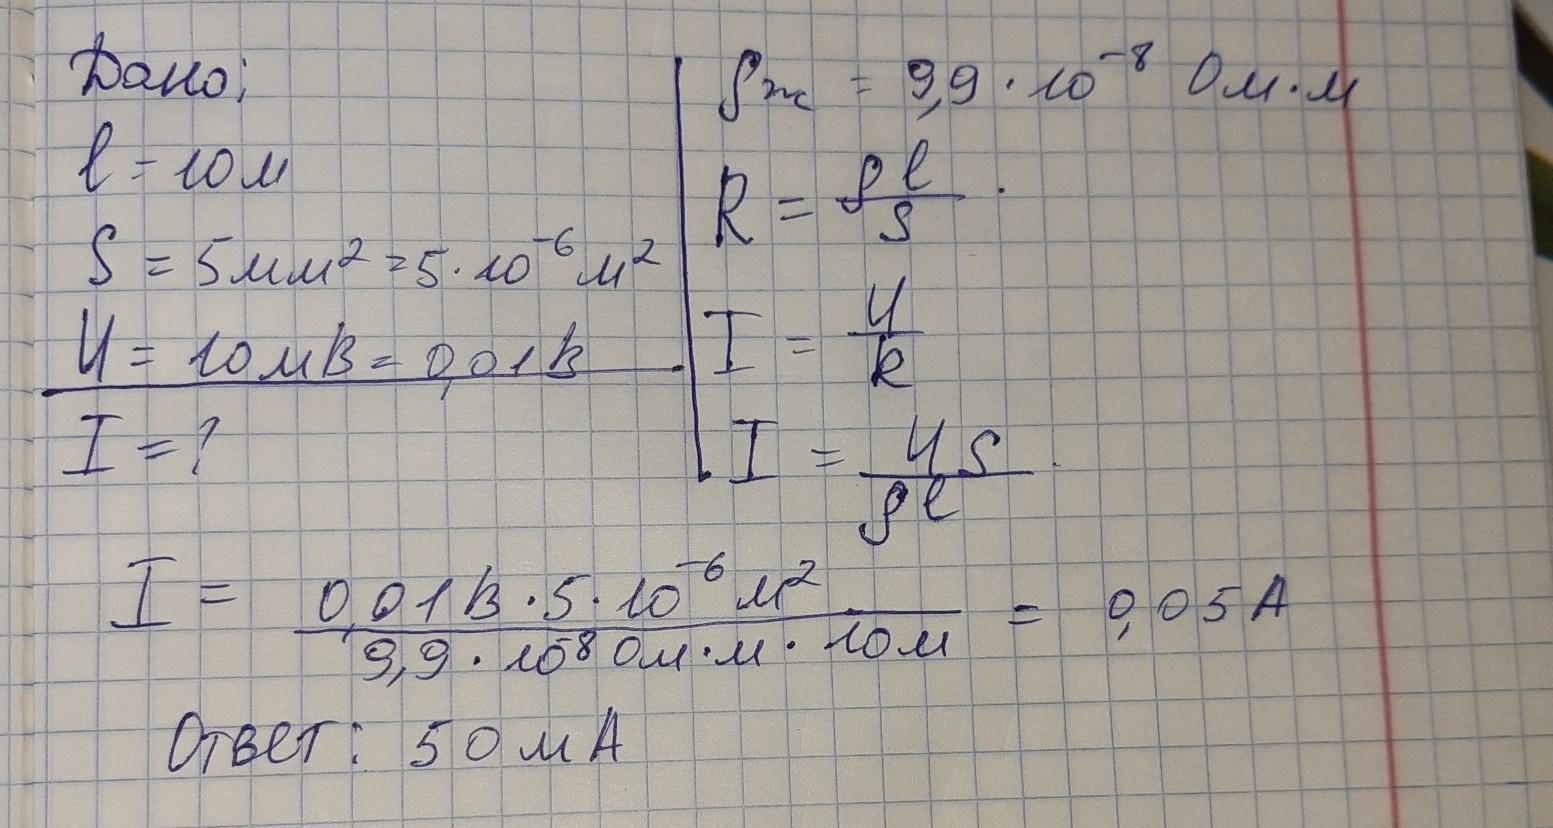 Дано:
l = 10м
S = 5мм² = 5·10⁻⁶м²
U = 10мВ = 0,01В
I = ?
ρж = 9,9·10⁻⁸ Ом·м
R = ρl/S
I = U/R
I = US/ρl
I = 0,01В·5·10⁻⁶м² / 9,9·10⁻⁸Ом·м·10м = 0,05А
Ответ: 50мА